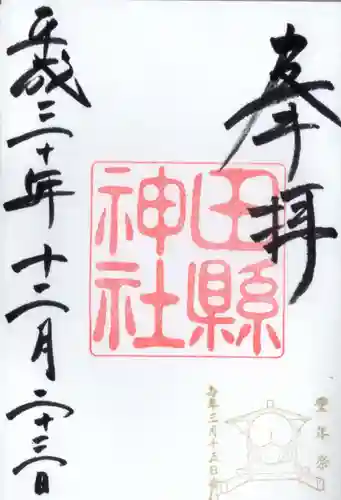 奉拝
田縣
神社
豊年祭
毎年三月十五日
平成三十年十二月二十三日